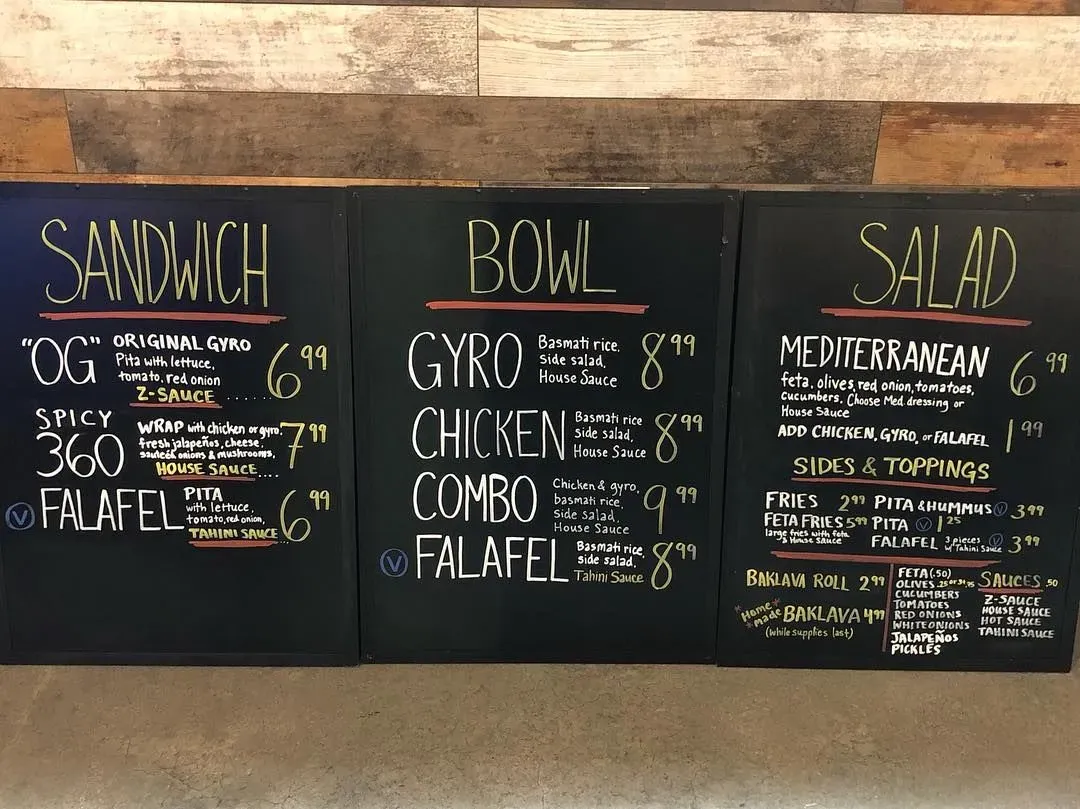 SANDWICH
"OG" ORIGINAL GYRO 6.99
Pita with lettuce,
tomato, red onion
Z-SAUCE ......
SPICY
360 WRAP with chicken or gyro, 7.99
fresh jalapeños, cheese,
sauteék onions & mushrooms,
HOUSE SAUCE....
Ⓥ FALAFEL PITA 6.99
with lettuce,
tomato, red onion,
TAHINI SAUCE
BOWL
GYRO Basmati rice, 8.99
side salad,
House Sauce
CHICKEN Basmati rice 8.99
side salad,
House Sauce
COMBO Chicken & gyro, 9.99
basmati rice,
side salad,
House Sauce
Ⓥ FALAFEL Basmati rice, 8.99
side salad,
Tahini Sauce
SALAD
MEDITERRANEAN 6.99
feta, olives, red onion, tomatoes,
cucumbers. Choose Med. dressing or
House Sauce
ADD CHICKEN, GYRO, or FALAFEL 1.99
SIDES & TOPPINGS
FRIES 2.99
FETA FRIES 5.99
large fries with feta
& House Sauce
PITA & HUMMUS Ⓥ 3.99
PITA Ⓥ 1.25
FALAFEL 3 pieces Ⓥ 3.99
w/ Tahini Sauce
BAKLAVA ROLL 2.99
*Home made* BAKLAVA 4.99
(while supplies last)
FETA (.50)
OLIVES .25 or 3/.75
CUCUMBERS
TOMATOES
RED ONIONS
WHITE ONIONS
JALAPEÑOS
PICKLES
SAUCES .50
Z-SAUCE
HOUSE SAUCE
HOT SAUCE
TAHINI SAUCE